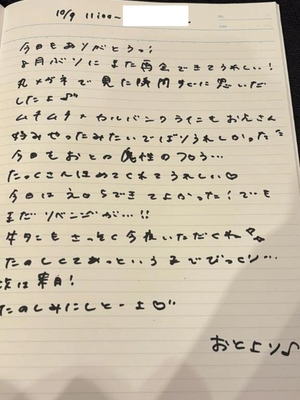 10/9 11:00~
今日もありがとうっ!
8月ぶりにまた再会できてうれしい!
丸メガネで見た瞬間すぐに思いだ
したよ♪
ムチムチ×カルバンクラインもお兄さん
好みやったみたいでばりうれしかった
今日もおとの 性のフロう…
たっくさんほめてくれてうれしい♡
今日は えっちできてよかった!でも
まだリベンジが…!!
牛タンもさっそく今夜いただくね
たのしくてあっというまでびっくり…
次は来月!
たのしみにしと−よ♡
おとより♪